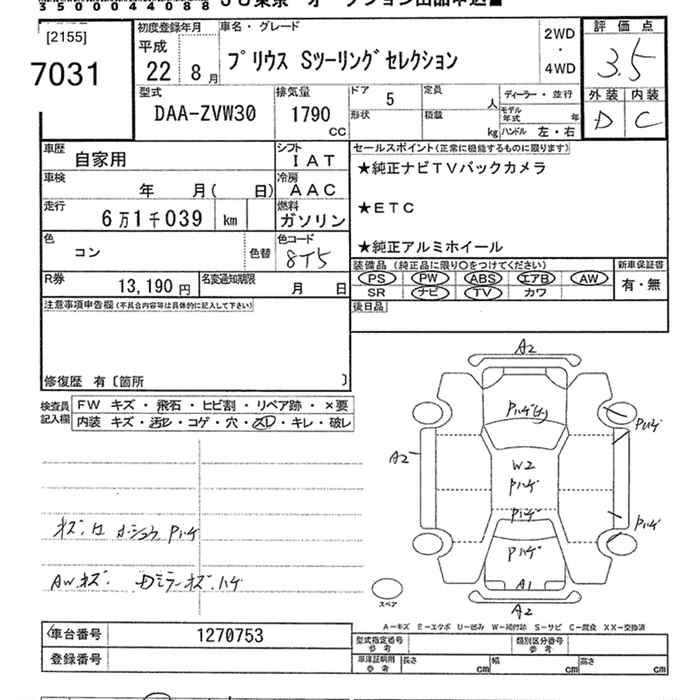 350000044088
JU東京 オークション出品申込■
[2155]
7031
初度登録年月
平成
22 8月
車名・グレード
プリウス Sツーリングセレクション
2WD
・
4WD
評価点
3.5
外装 内装
D C
型式
DAA-ZVW30
排気量
1790
CC
ドア
5
形状
定員
人
積載
kg
ディーラー・並行
モデル年式 年
ハンドル 左・右
車歴
自家用
シフト
IAT
車検
年 月( 日)
冷房
AAC
走行
6万1千039 km
燃料
ガソリン
色
コン
色替
色コード
8T5
R券
13,190円
名変通知期限
月 日
セールスポイント(正常に機能するものに限ります)
★純正ナビTVバックカメラ
★ETC
★純正アルミホイール
装備品 (純正品に限り○をつけてください)
新車保証書
PS PW ABS エアB AW
SR ナビ TV カワ
有・無
後日品
注意事項申告欄(不具合内容等は具体的に記入して下さい)
修復歴 有〔箇所 〕
検査員
記入欄
FW キズ・飛石・ヒビ割・リペア跡・×要
内装 キズ・汚レ・コゲ・穴・スレ・キレ・破レ
Pハゲ
AWキズ Dミラーキズ、ハゲ
A2
Pハゲ
A2
W2
Pハゲ
Pハゲ
Pハゲ
Pハゲ
Pハゲ
A1
A2
スペア
A-キズ E-エクボ U-凹み W-補修跡 S-サビ C-腐食 XX-交換済
車台番号
1270753
登録番号
型式指定番号
参考
類別区分番号
参考
車庫証明用
参考
長さ cm
幅 cm
高さ cm